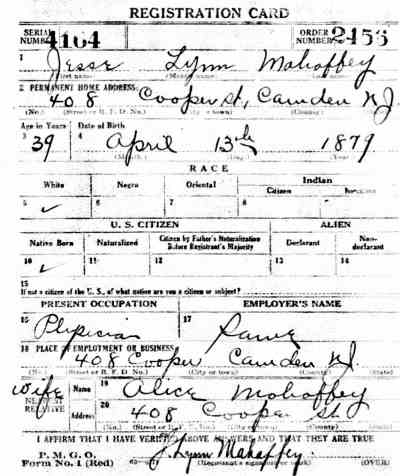 REGISTRATION CARD
SERIAL NUMBER 4164 ORDER NUMBER 2453
1 Jesse Lynn Mahaffey
(First name) (Middle name) (Last name)
2 PERMANENT HOME ADDRESS:
408 Cooper St, Camden NJ
(No.) (Street or R. F. D. No.) (City or town) (County) (State)
Age in Years Date of Birth
3 39 4 April 13th 1879
(Month.) (Day.) (Year.)
RACE
White Negro Oriental Indian
Citizen Noncitizen
5 ✓ 6 7 8 9
U. S. CITIZEN ALIEN
Native Born Naturalized Citizen by Father's Naturalization Before Registrant's Majority Declarant Non-declarant
10 ✓ 11 12 13 14
15
If not a citizen of the U. S., of what nation are you a citizen or subject?
PRESENT OCCUPATION EMPLOYER'S NAME
16 Physician 17 Same
18 PLACE OF EMPLOYMENT OR BUSINESS:
408 Cooper Camden NJ.
(No.) (Street or R. F. D. No.) (City or town) (County) (State)
Wife Name 19 Alice Mahaffey
NEAREST RELATIVE
Address 20 408 Cooper St
(No.) (Street or R. F. D. No.) (City or town) (State)
I AFFIRM THAT I HAVE VERIFIED ABOVE ANSWERS AND THAT THEY ARE TRUE
P. M. G. O.
Form No. 1 (Red) J. Lynn Mahaffey.
(Registrant's signature or mark) (OVER)